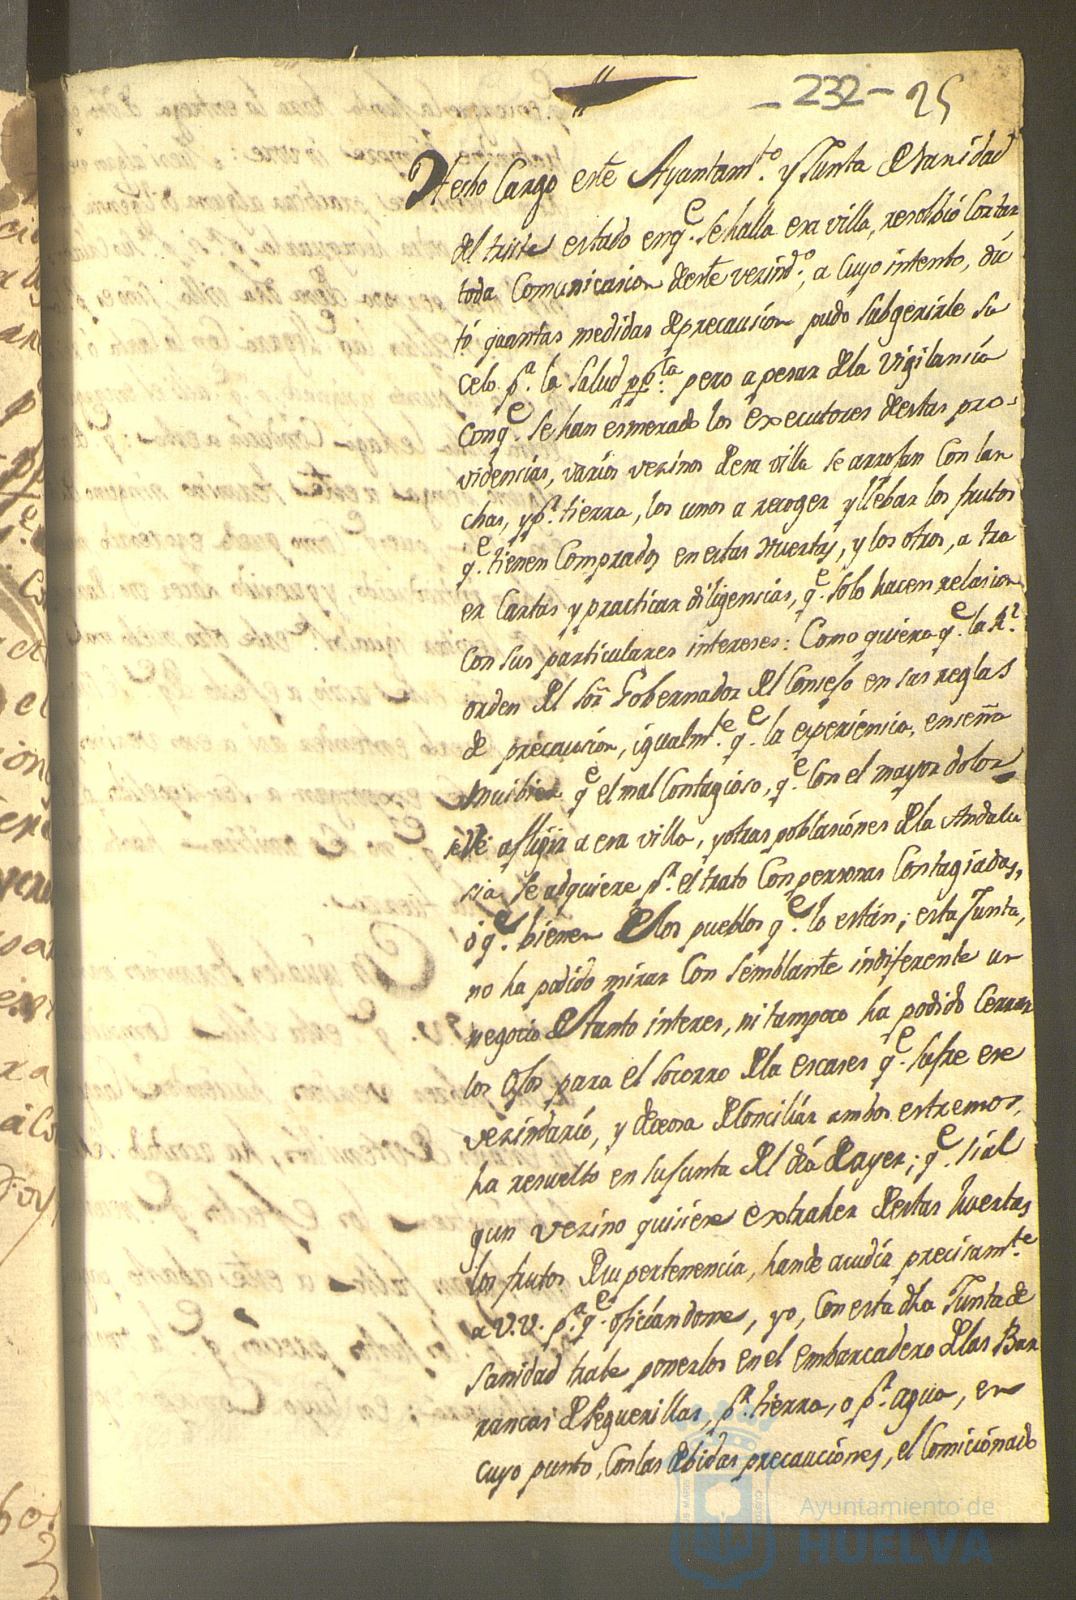 -232- 25
Hecho Cargo este Ayuntamto. y Junta de Sanidad
del triste estado enqe. se halla esa villa, resolbió Cortar
toda Comunicacion deeste vezindo., a Cuyo intento, dic
tó quantas medidas de precausion pudo Subgerirle su
Celo pa. la Salud ppca. pero apesar dela vigilancia
Conqe. se han esmerado los executores destas pro-
videncias, varios vezinos desa villa se arrojan Con lan
chas, y pr. tierra, los unos a recoger y llebar los frutos
qe. tienen Comprados en estas Huertas, y los otros, a tra
er Cartas y practicar diligencias, qe. solo hacen relasion
Con sus particulares intereses: Como quiera qe. la Rl.
orden del Sor. Gobernador del Consejo en sus reglas
de precausion, igualmte. qe. la experiencia, enseña
mui bien qe. el mal Contagioso, qe. Con el mayor dolor
se ve afligir a esa villa, y otras poblasiones dela Andalu
sia se adquiere pr. el trato Con personas Contagiadas,
ó qe. bienen de los pueblos qe. lo están; esta Junta,
no ha podido mirar Con semblante indiferente un
negocio de tanto interes, ni tampoco ha podido Cerrar
los Ojos para el Socorro dela escases qe. sufre ese
vezindario, y deceosa de Conciliar ambos estremos,
ha resuelto en su Junta del dia de ayer; qe. si al
gun vezino quisiere extraher destas huertas
los frutos desu pertenencia, hande acudir precisamte.
a V.V. pa. qe. oficiandome, yo, Con esta dha Junta de
Sanidad trate ponerlos en el embarcadero delas Bar
rancas de Peguerillas, pr. tierra, o pr. agua, en
cuyo punto, Con las debidas precauciónes, el Comicionado
Ayuntamiento de
HUELVA